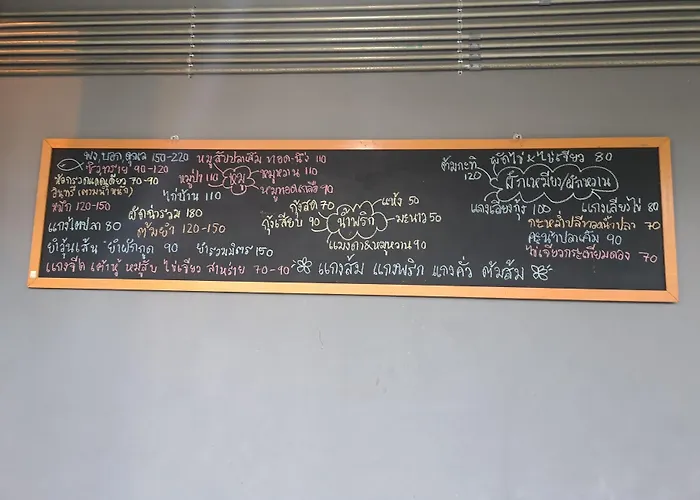 พง, บอก, คุณจ 150-220
ซิวทราย 90-120
70-90
อินทรี (ตามน้ำหนัก)
หมึก 120-150
แกงไตปลา 80
ยำวุ้นเส้น ยำผักกูด 90 ยำรวมมิตร 150
แกงจืด เต้าหู้ หมูสับ ไข่เจียว สาหร่าย 70-90
หมูสับปลาเค็ม ทอด-นึ่ง 110
หมูป่า 110
หมู
หมูหวาน 110
ไก่บ้าน 110
ผัดฉ่ารวม 180
ต้มยำ 120-150
กุ้งสด 70
กุ้งเสียบ 90
น้ำพริก
แห้ง 50
มะนาว 50
แมงดา 90
แกงส้ม แกงพริก แกงคั่ว ต้มส้ม
ต้มกะทิ 120
ผัดไข่ & ไข่เจียว 80
ผักเหมียง/ผักหวาน
แกงเลียงกุ้ง 100
แกงเลียงไข่ 80
กะหล่ำปลีทอดน้ำปลา 70
คะน้าปลาเค็ม 90
ไข่เจียวกระเทียมดอง 70